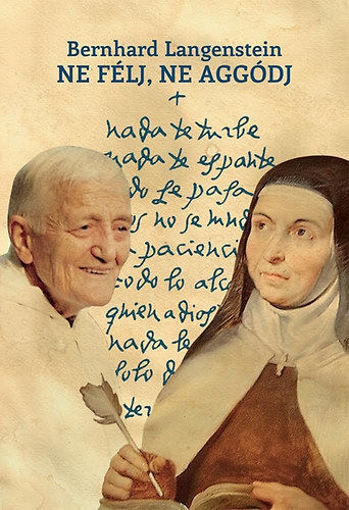 Bernhard Langenstein
NE FÉLJ, NE AGGÓDJ
nada te turbe
nada te espante
do se pasa
os no se mud
a pacienci
todo lo alc
quien a dios
nada le
solo d
ter